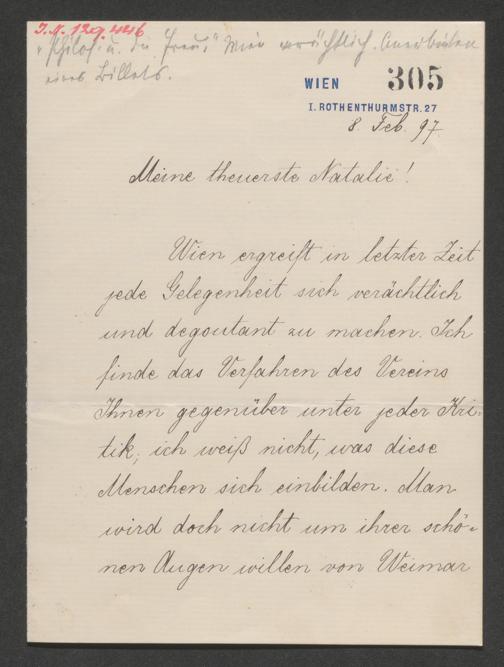 I.N. 129.446
"Philos. u. die Frau," Wien verächtlich. Anerbieten
eines Billets.
WIEN 305
I. ROTHENTHURMSTR. 27
8. Feb. 97.
Meine theuerste Natalie!
Wien ergreift in letzter Zeit
jede Gelegenheit sich verächtlich
und degoutant zu machen. Ich
finde das Verfahren des Vereins
Ihnen gegenüber unter jeder Kri-
tik; ich weiß nicht, was diese
Menschen sich einbilden. Man
wird doch nicht um ihrer schö-
nen Augen willen von Weimar